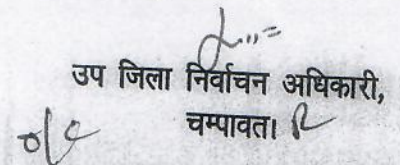 उप जिला निर्वाचन अधिकारी,
चम्पावत।